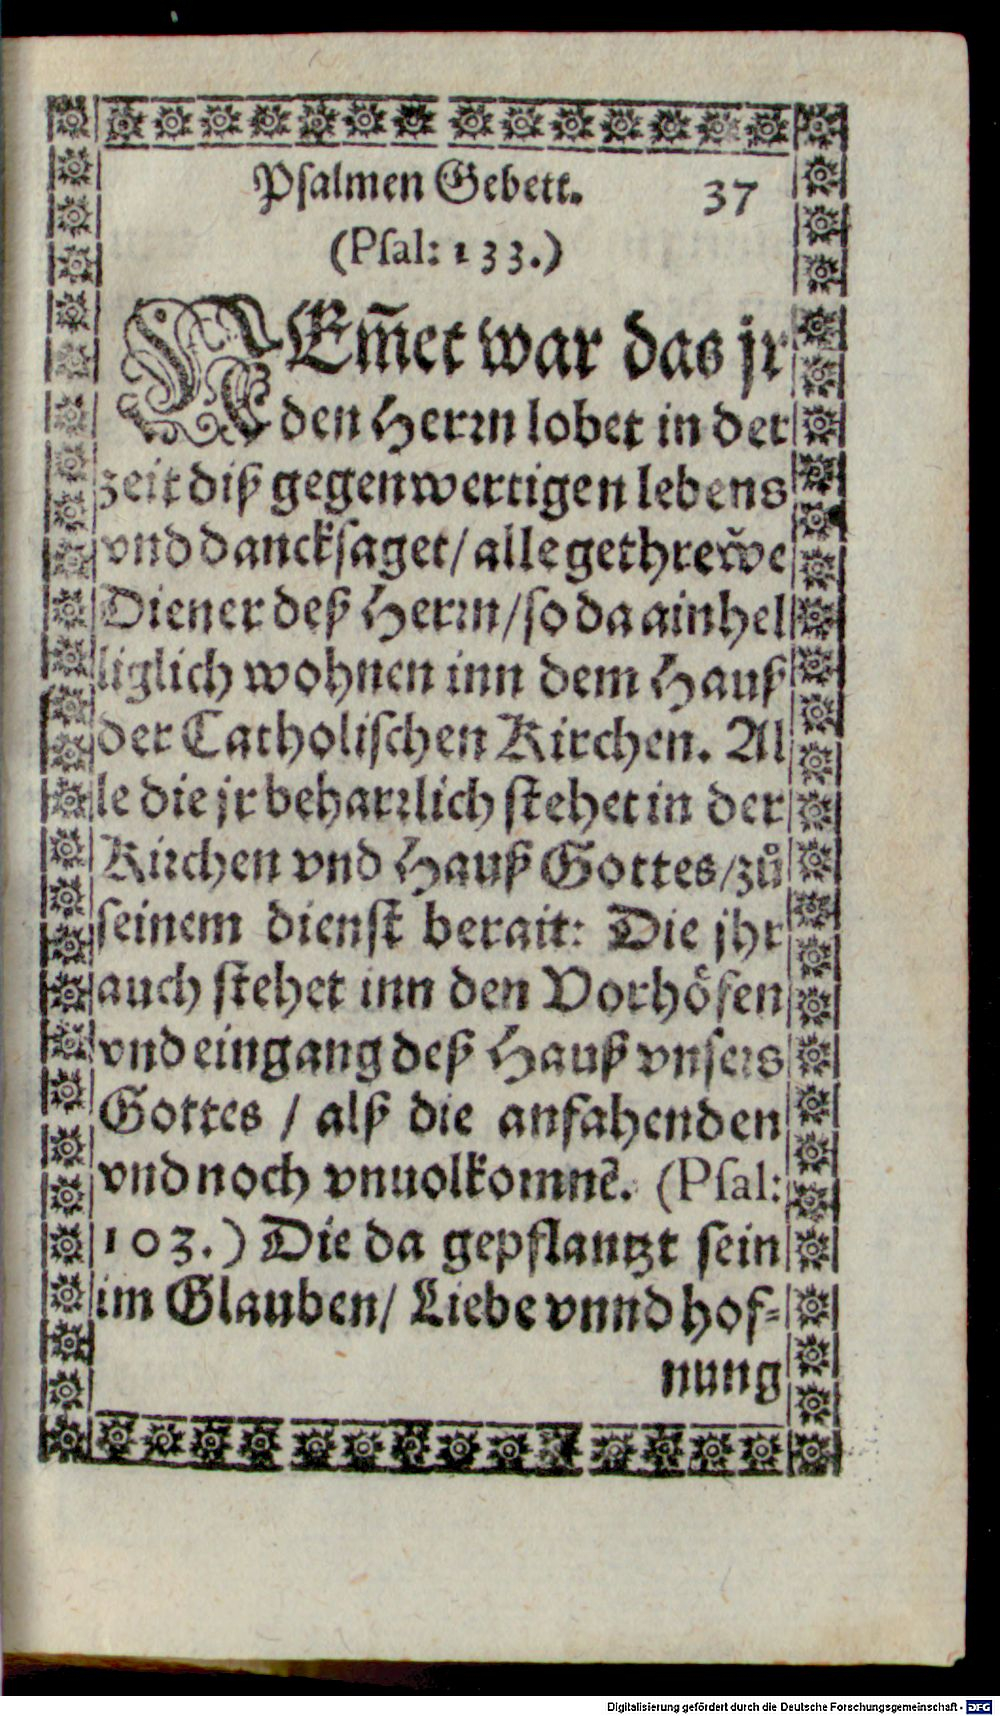 Psalmen Gebett. 37
(Psal: 133.)
NEm̃et war das jr
den Herrn lobet in der
zeit diß gegenwertigen lebens
vnd dancksaget/ alle gethrew̌e
Diener deß Herrn/ so da ainhel
liglich wohnen inn dem Hauß
der Catholischen Kirchen. Al
le die jr beharrlich stehet in der
Kirchen vnd Hauß Gottes/ zů
seinem dienst berait: Die jhr
auch stehet inn den Vorhöfen
vnd eingang deß Hauß vnsers
Gottes / alß die anfahenden
vnd noch vnuolkomnẽ. (Psal:
103.) Die da gepflantzt sein
im Glauben/ Liebe vnnd hof-
nung
Digitalisierung gefördert durch die Deutsche Forschungsgemeinschaft - DFG